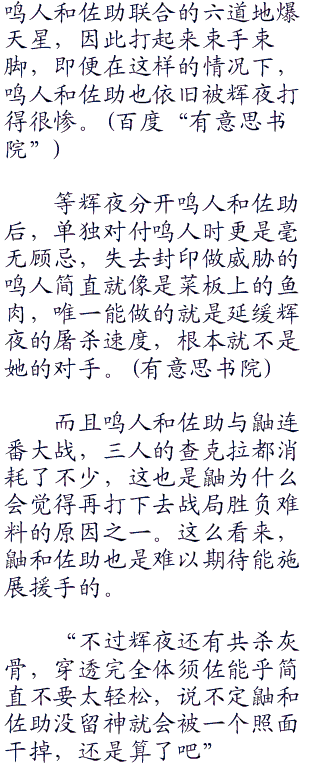 鸣人和佐助联合的六道地爆
天星，因此打起来束手束
脚，即便在这样的情况下，
鸣人和佐助也依旧被辉夜打
得很惨。(百度“有意思书
院”)
等辉夜分开鸣人和佐助
后，单独对付鸣人时更是毫
无顾忌，失去封印做威胁的
鸣人简直就像是菜板上的鱼
肉，唯一能做的就是延缓辉
夜的屠杀速度，根本就不是
她的对手。(有意思书院)
而且鸣人和佐助与鼬连
番大战，三人的查克拉都消
耗了不少，这也是鼬为什么
会觉得再打下去战局胜负难
料的原因之一。这么看来，
鼬和佐助也是难以期待能施
展援手的。
“不过辉夜还有共杀灰
骨，穿透完全体须佐能乎简
直不要太轻松，说不定鼬和
佐助没留神就会被一个照面
干掉，还是算了吧”